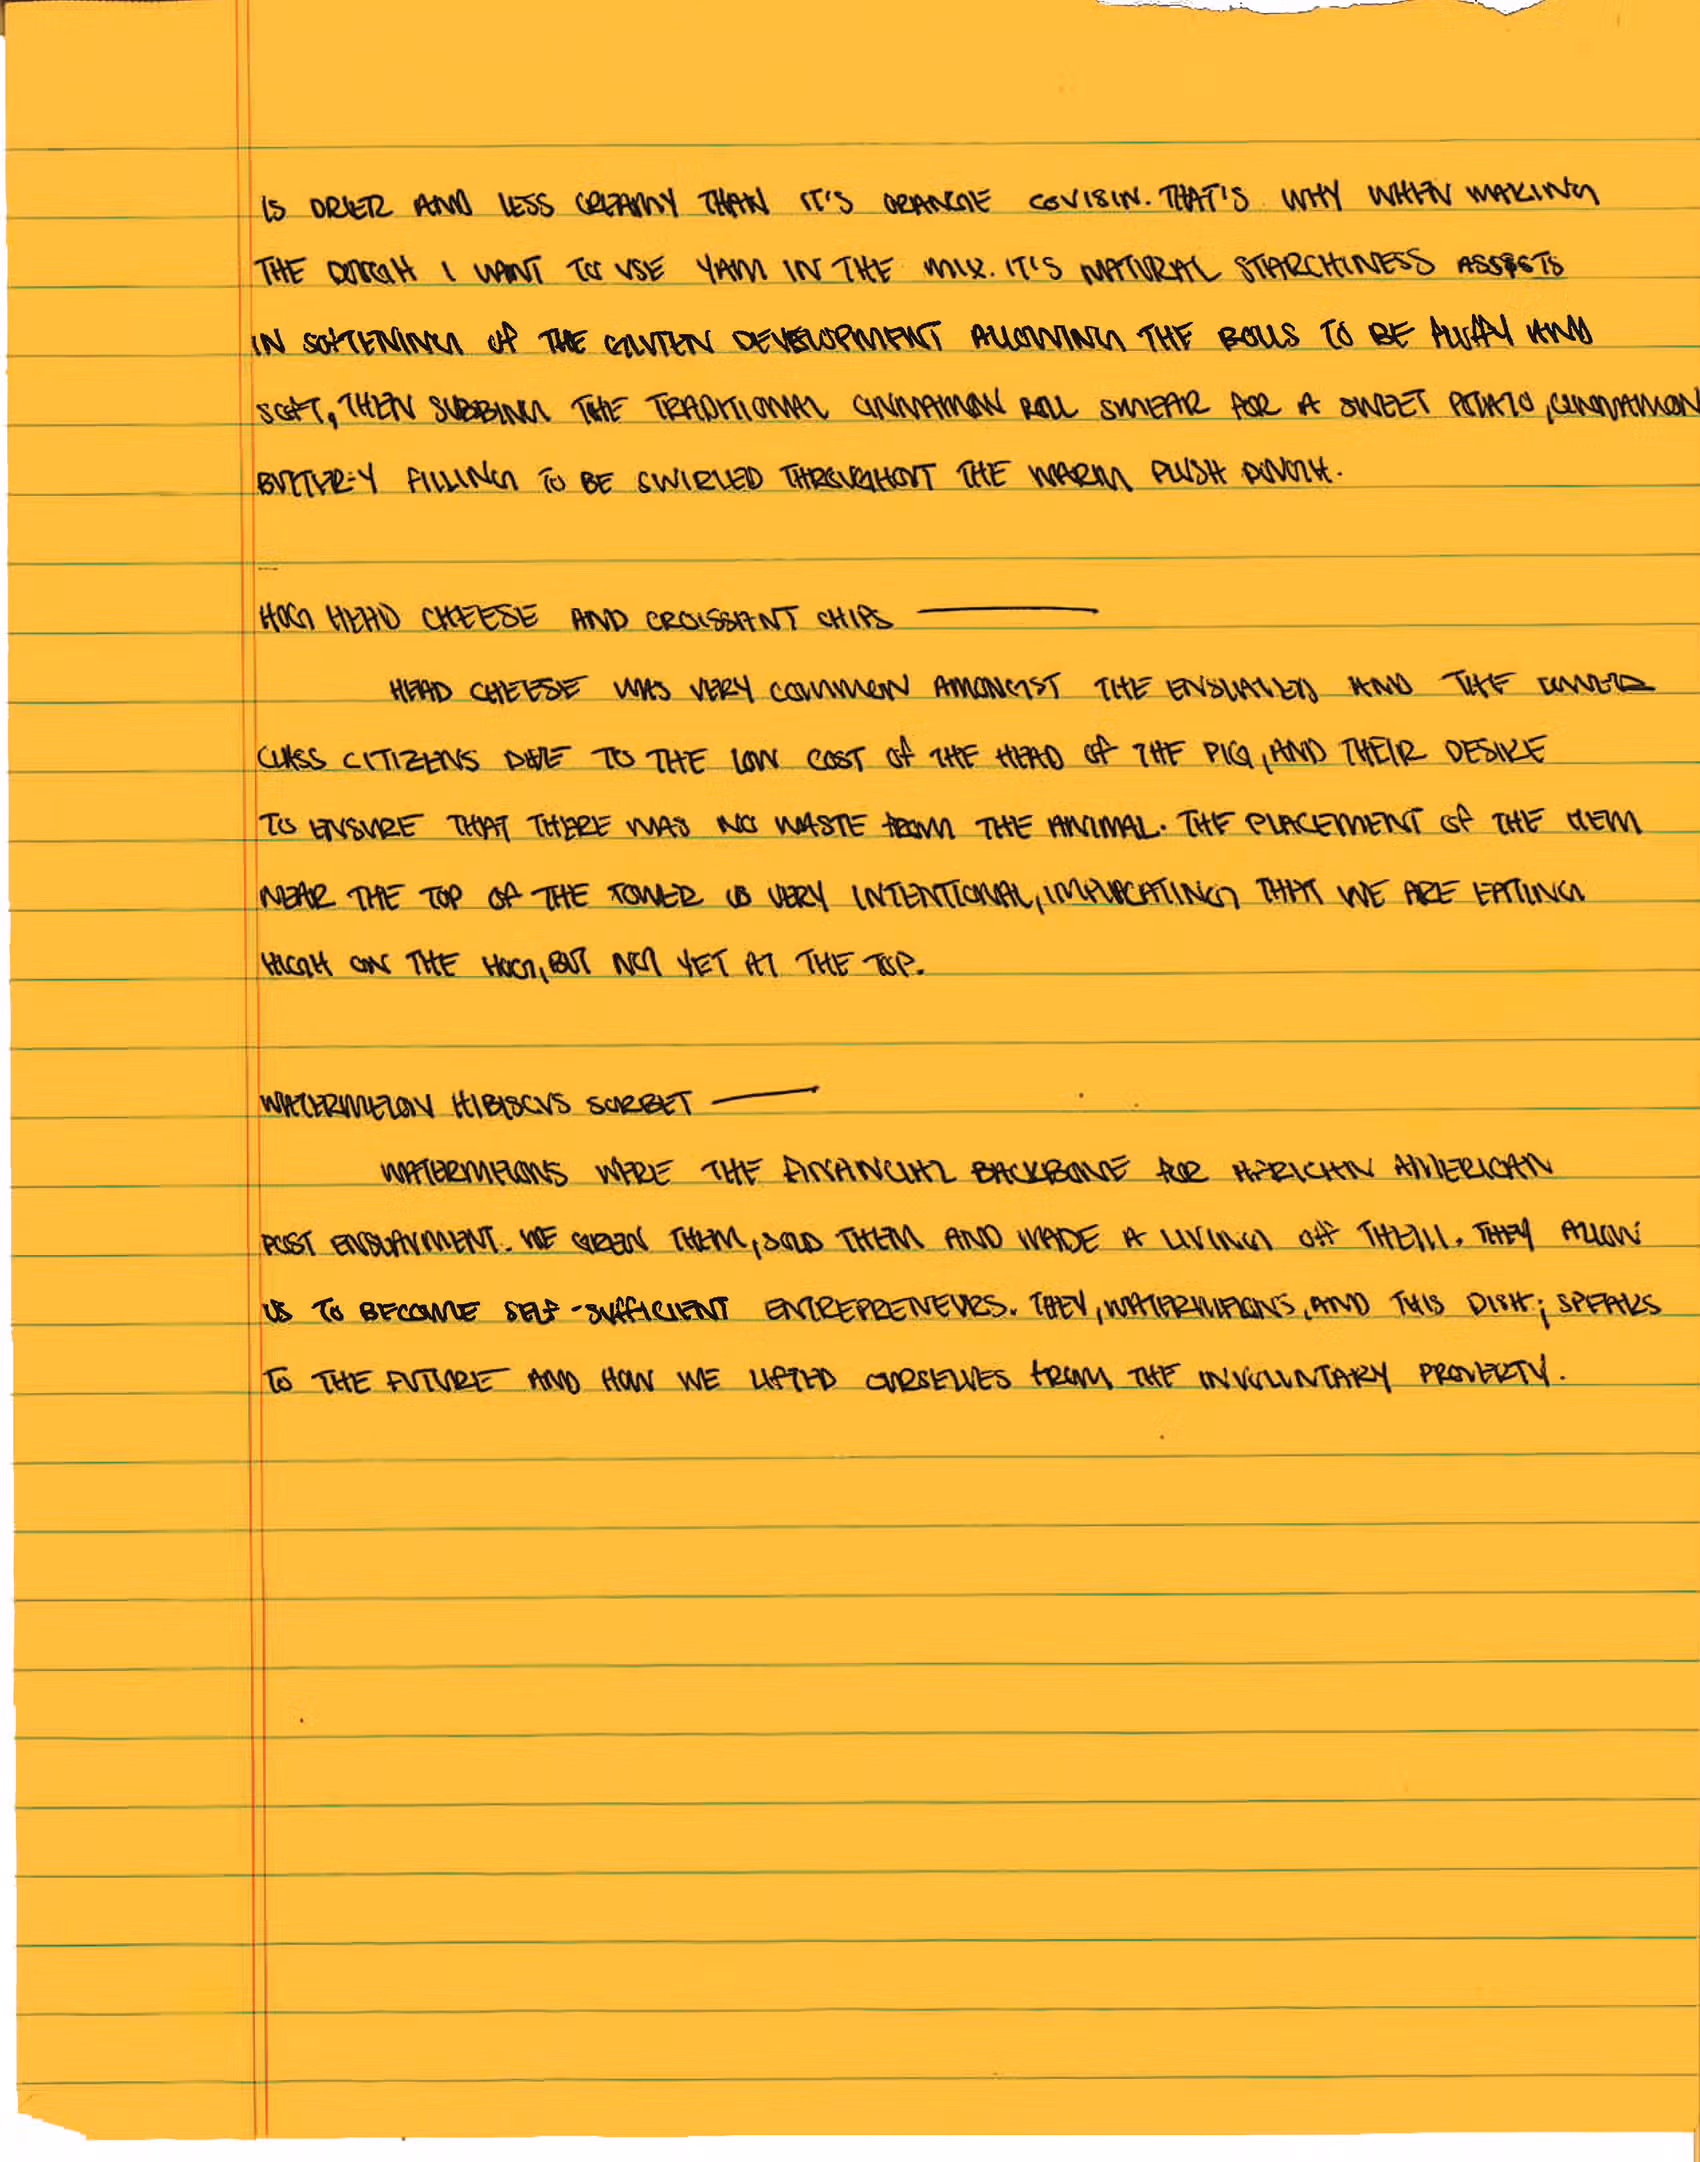 IS DRIER AND LESS CREAMY THAN IT'S ORANGE COUISIN. THAT'S WHY WHEN MAKING
THE DOUGH I WANT TO USE YAM IN THE MIX. IT'S NATURAL STARCHINESS ASSISTS
IN SOFTENING OF THE GLUTEN DEVELOPMENT ALLOWING THE ROLLS TO BE FLUFFY AND
SOFT, THEN SUBBING THE TRADITIONAL CINNAMON ROLL SMEAR FOR A SWEET POTATO, CINNAMON
BUTTER-Y FILLING TO BE SWIRLED THROUGHOUT THE WARM PLUSH DOUGH.
HOG HEAD CHEESE AND CROISSANT CHIPS —
HEAD CHEESE WAS VERY COMMON AMONGST THE ENSLAVED AND THE LOWER
CLASS CITIZENS DUE TO THE LOW COST OF THE HEAD OF THE PIG, AND THEIR DESIRE
TO ENSURE THAT THERE WAS NO WASTE FROM THE ANIMAL. THE PLACEMENT OF THE ITEM
NEAR THE TOP OF THE TOWER IS VERY INTENTIONAL, IMPLICATING THAT WE ARE EATING
HIGH ON THE HOG, BUT NOT YET AT THE TOP.
WATERMELON HIBISCUS SORBET —
WATERMELONS WERE THE FINANCIAL BACKBONE FOR AFRICAN AMERICAN
POST ENSLAVMENT. WE GREW THEM, SOLD THEM AND MADE A LIVING OFF THEM. THEY ALLOW
US TO BECOME SELF-SUFFICIENT ENTREPRENEURS. THEY, WATERMELONS, AND THIS DISH; SPEAKS
TO THE FUTURE AND HOW WE LIFTED OURSELVES FROM THE INVOLUNTARY PROVERTY.